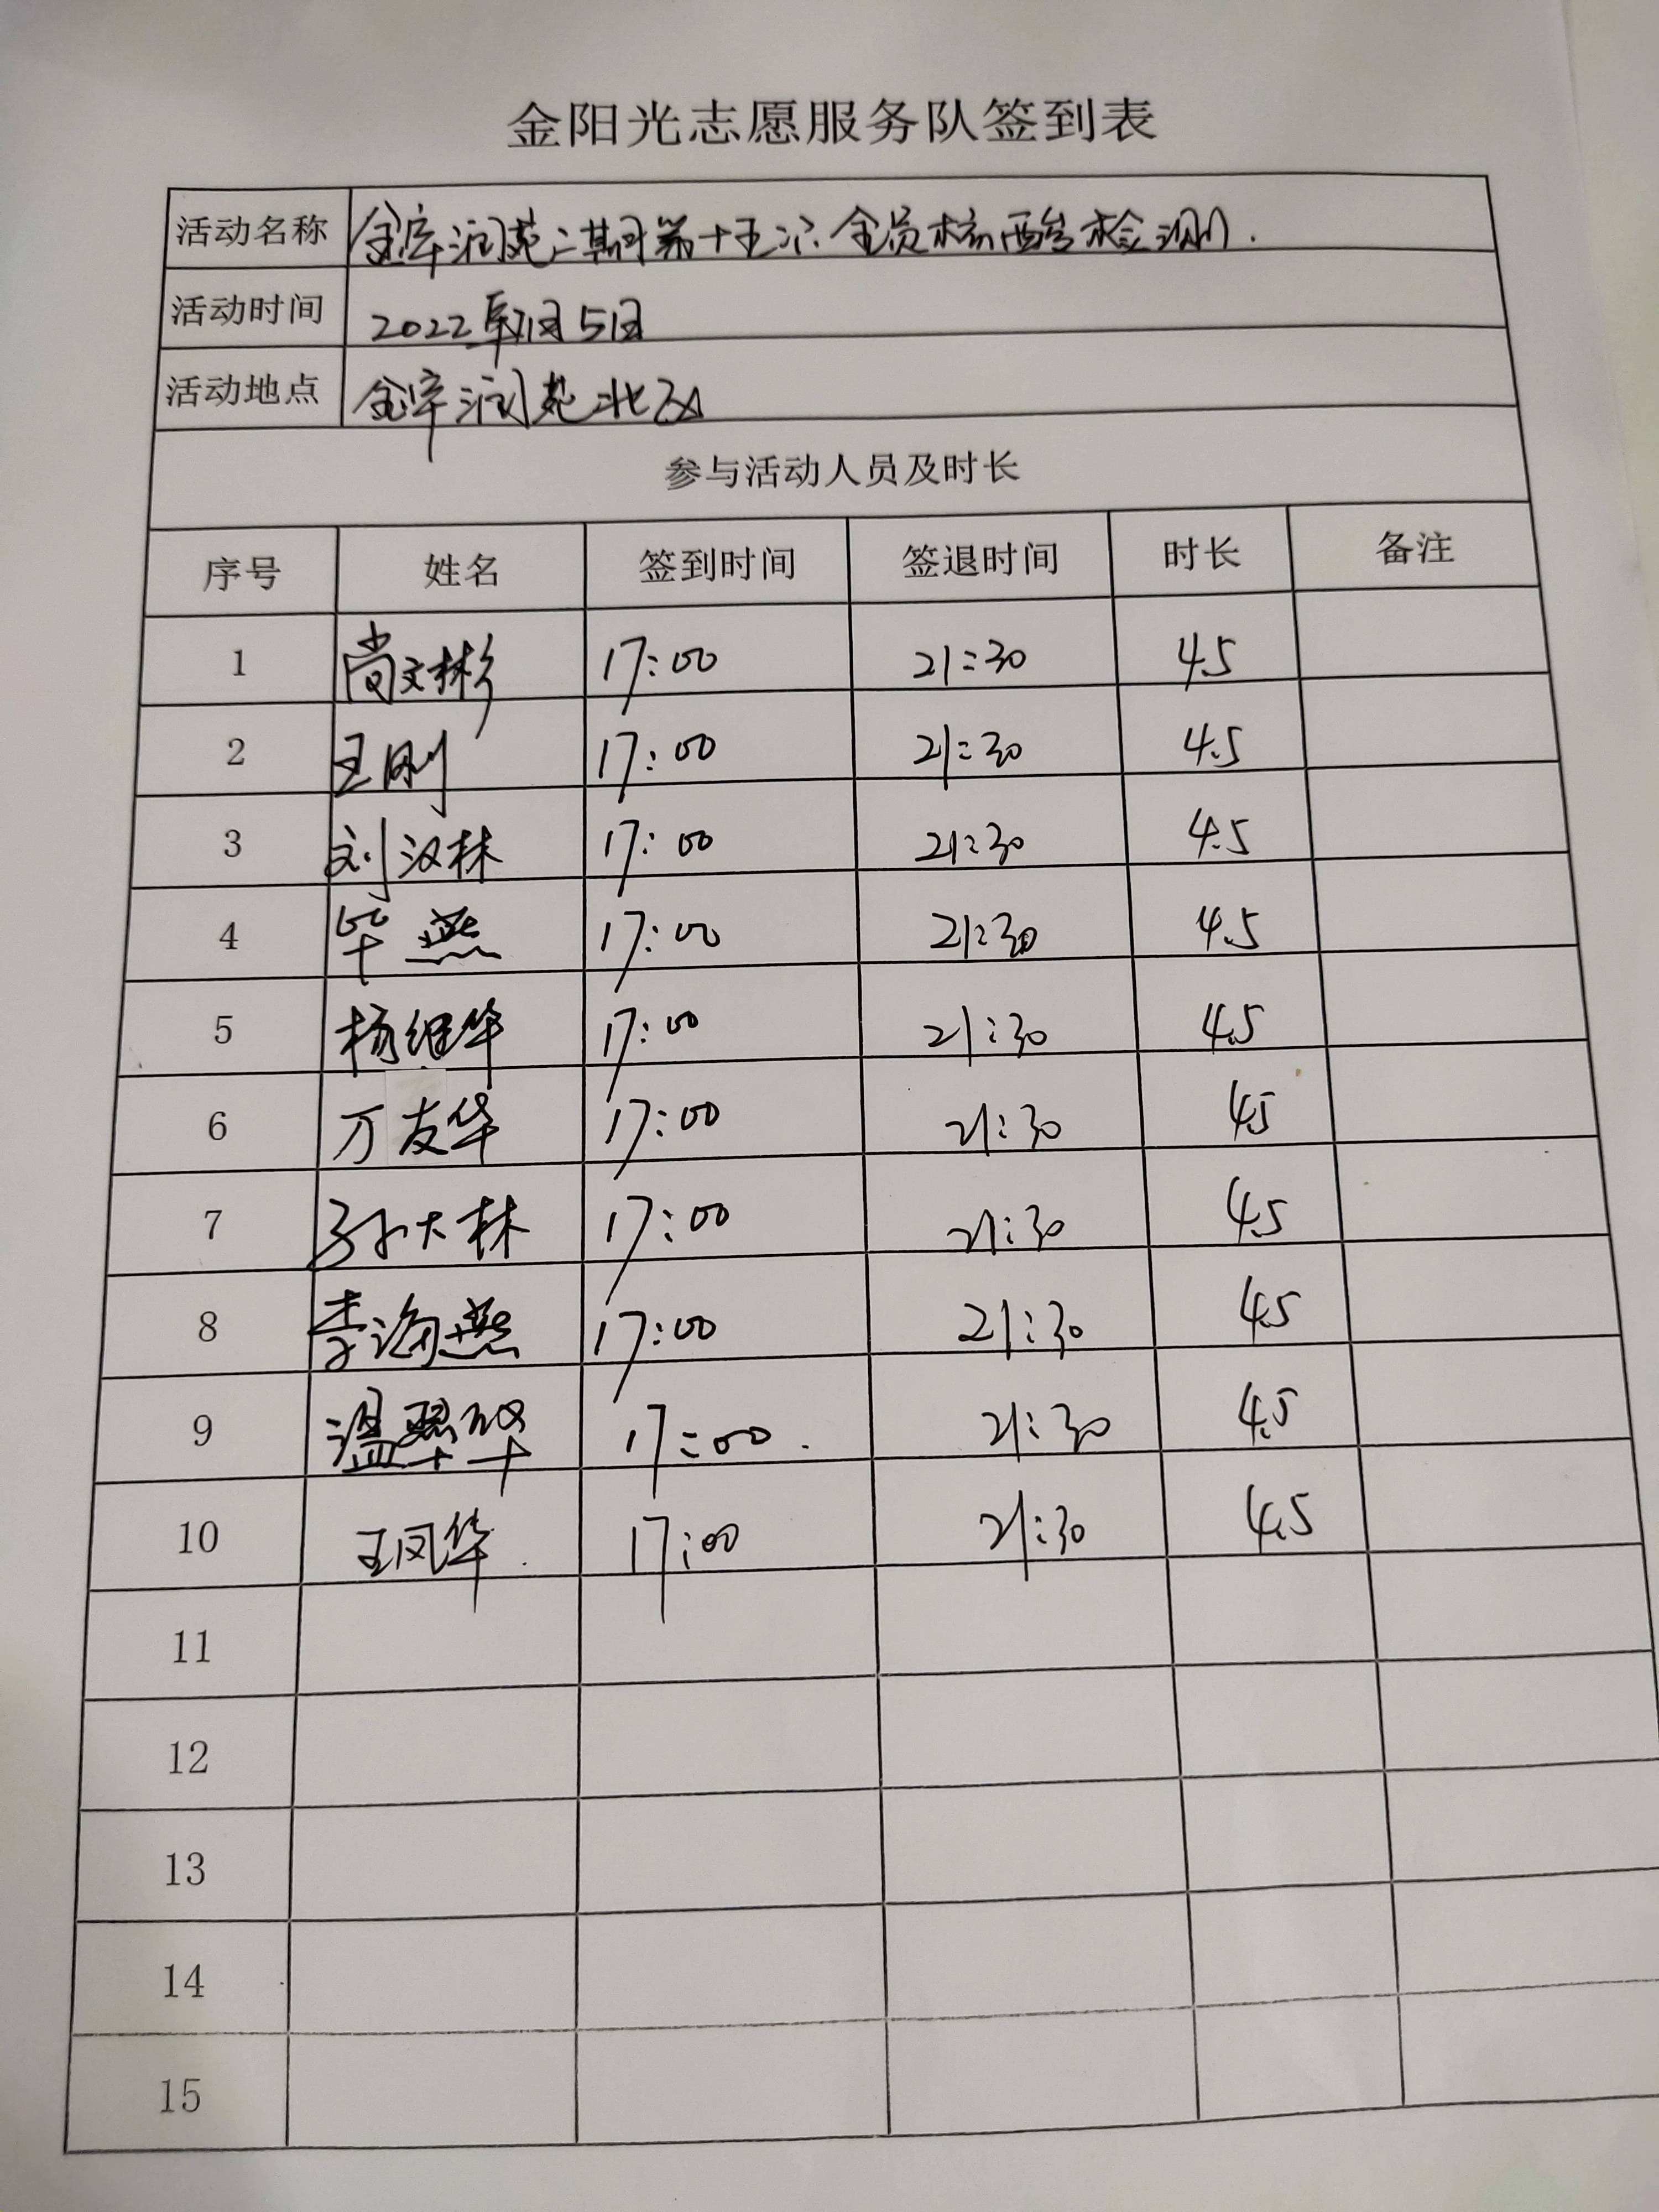 金阳光志愿服务队签到表
活动名称 金库润苑二期第十五次全员核酸检测.
活动时间 2022年11月5日
活动地点 金库润苑北区
参与活动人员及时长
序号 姓名 签到时间 签退时间 时长 备注
1 尚文彬 17:00 21:30 4.5
2 王刚 17:00 21:30 4.5
3 刘汉林 17:00 21:30 4.5
4 毕燕 17:00 21:30 4.5
5 杨继华 17:00 21:30 4.5
6 万友华 17:00 21:30 4.5
7 孙大林 17:00 21:30 4.5
8 李海燕 17:00 21:30 4.5
9 温翠萍 17:00 21:30 4.5
10 王凤华 17:00 21:30 4.5
11
12
13
14
15